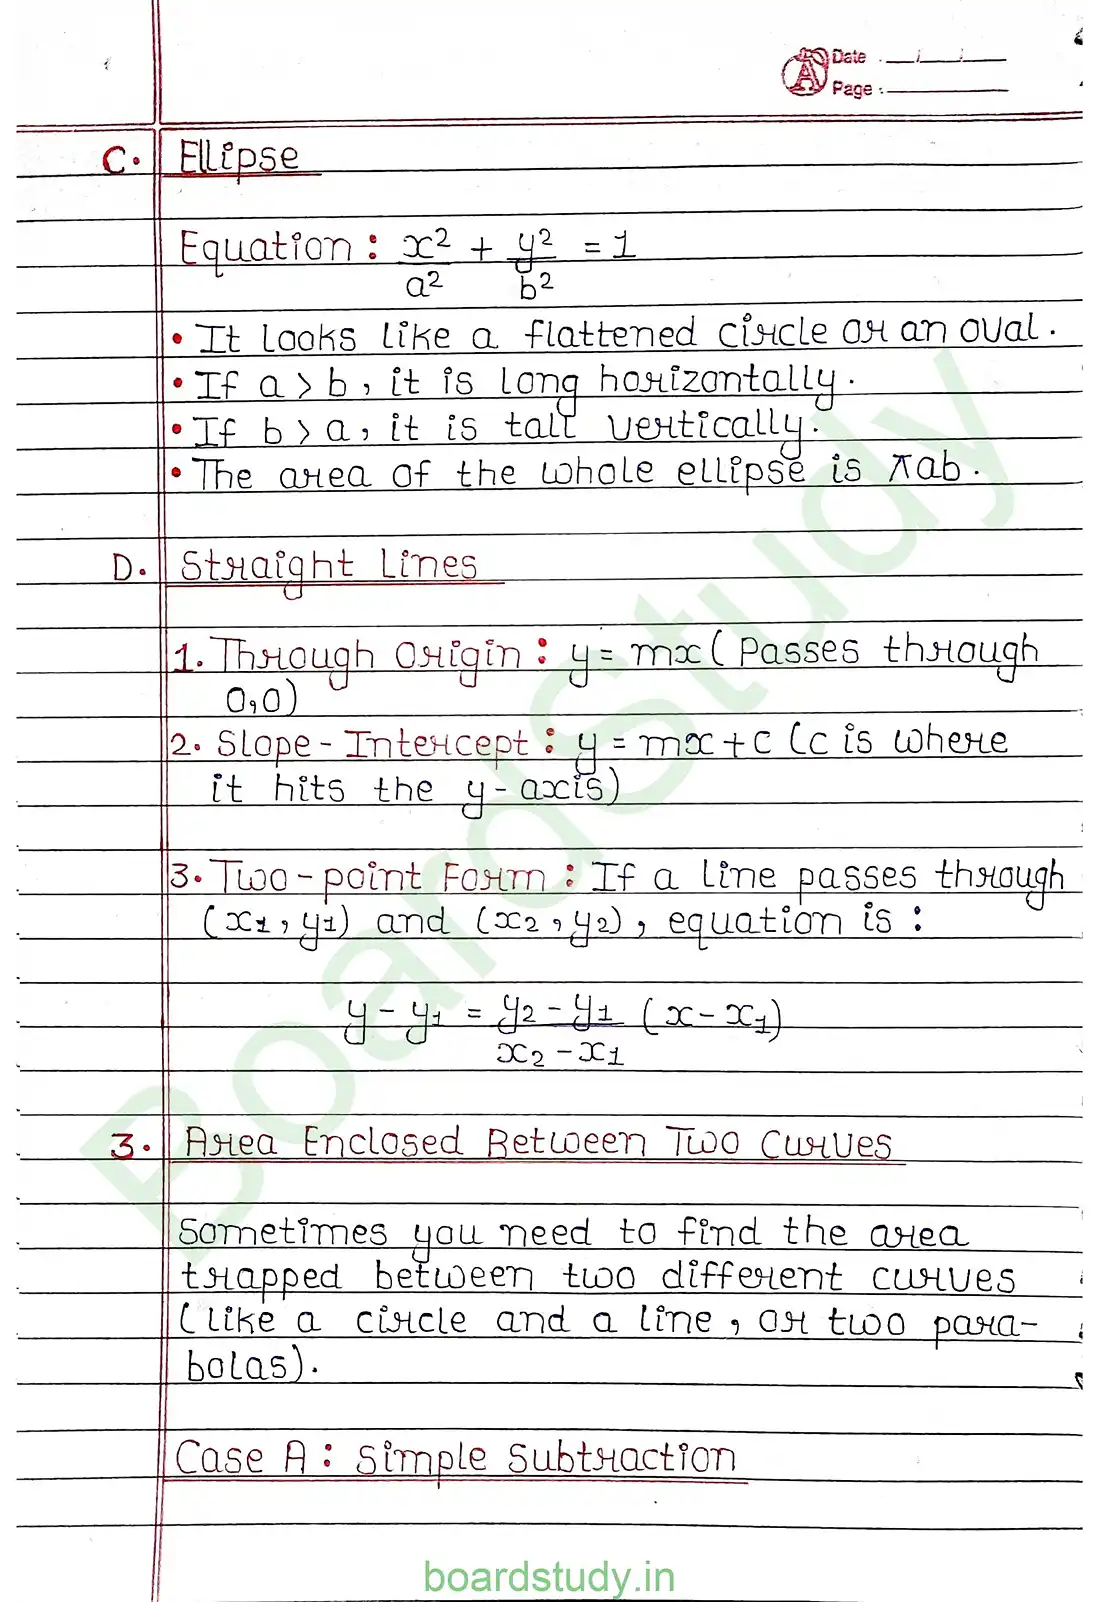 Date
Page :
C. Ellipse
Equation : x²/a² + y²/b² = 1
• It looks like a flattened circle or an oval.
• If a > b, it is long horizontally.
• If b > a, it is tall vertically.
• The area of the whole ellipse is πab.
D. Straight Lines
1. Through Origin : y = mx ( Passes through
0,0)
2. Slope - Intercept : y = mx + c (c is where
it hits the y - axis)
3. Two - point Form : If a line passes through
(x₁, y₁) and (x₂, y₂), equation is :
y - y₁ = y₂ - y₁/x₂ - x₁ (x - x₁)
3. Area Enclosed Between Two Curves
Sometimes you need to find the area
trapped between two different curves
(like a circle and a line, or two para-
bolas).
Case A : Simple Subtraction
BoardStudy
boardstudy.in